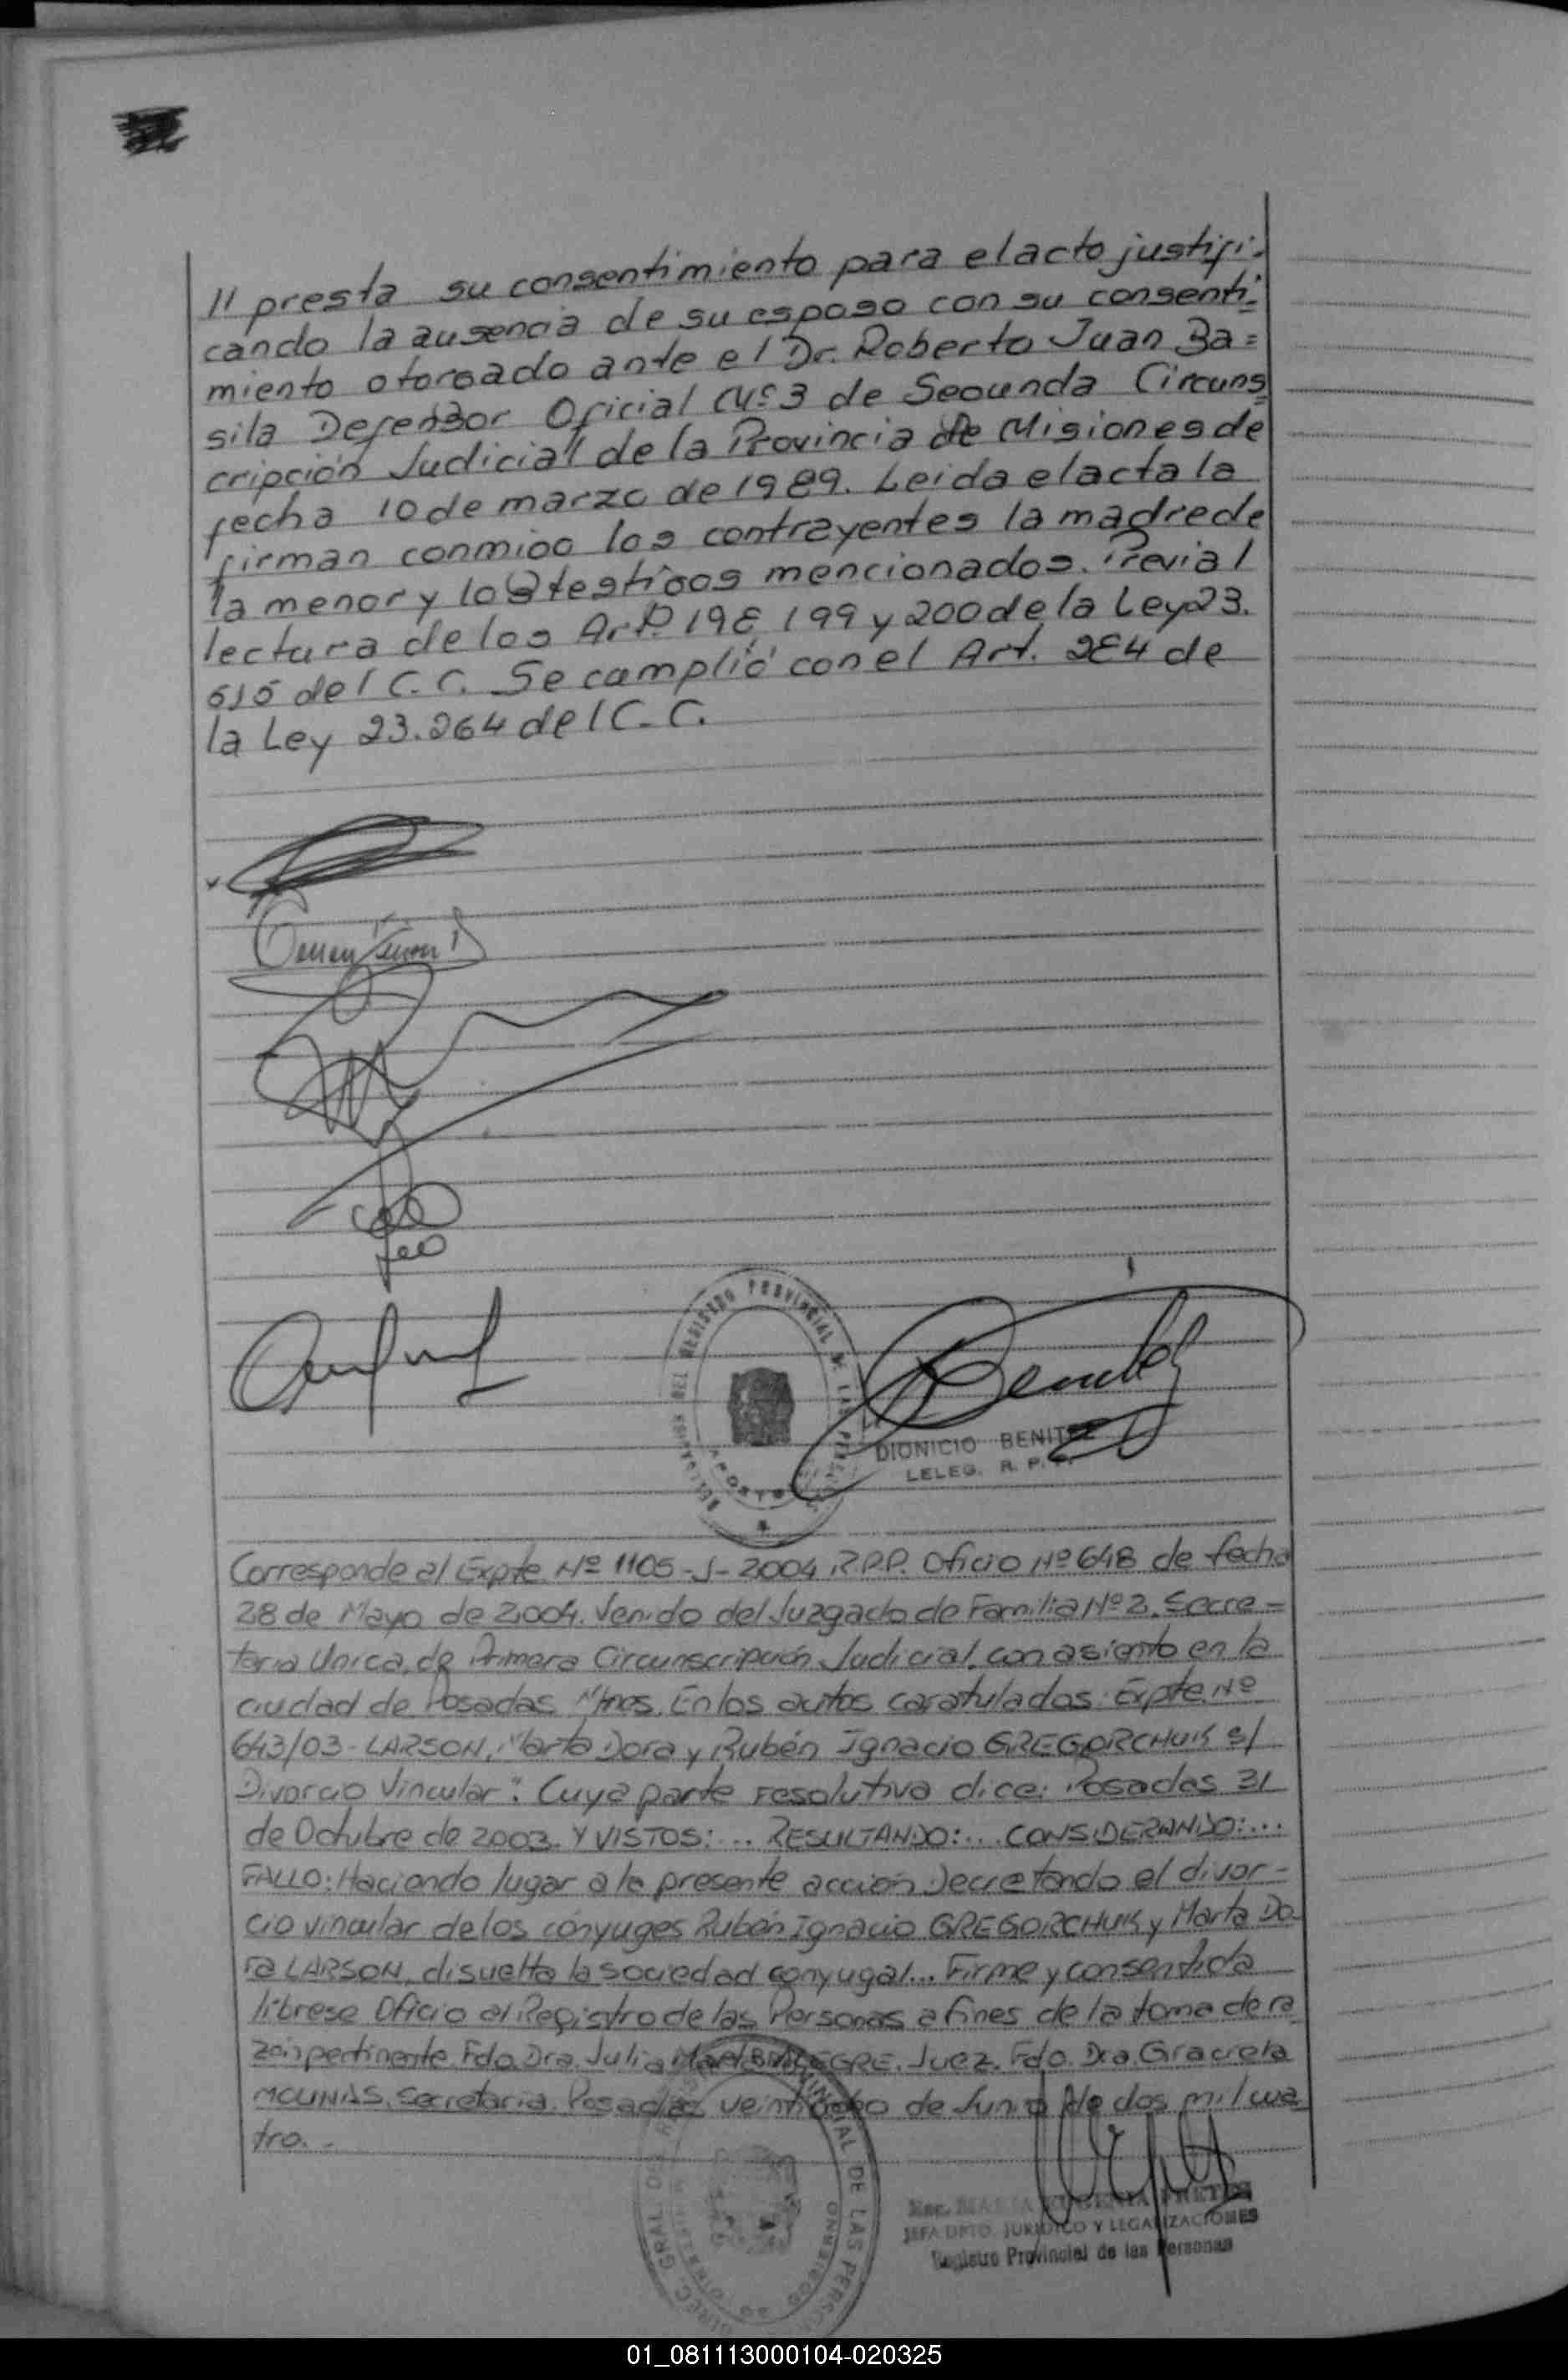 11 presta su consentimiento para el acto justifi-
cando la ausencia de su esposo con su consenti-
miento otorgado ante el Dr. Roberto Juan Ba=
sila Defensor Oficial Nº 3 de Segunda Circuns
cripción Judicial de la Provincia de Misiones de
fecha 10 de marzo de 1989. Leida el acta la
firman conmigo los contrayentes la madre de
la menor y los testigos mencionados. Previa l
lectura de los Art. 198, 199 y 200 de la Ley 23.
515 del C.C. Se camplió con el Art. 284 de
la Ley 23.264 del C.C.
DEL REGISTRO PROVINCIAL DE LAS
DIONICIO BENITEZ
LELEG. R. P. P.
Corresponde al Expte. Nº 1105-J-2004 R.P.P. Oficio Nº 648 de fecha
28 de Mayo de 2004. Venido del Juzgado de Familia Nº 2. Secre=
taria Unica, de Primera Circunscripción Judicial, con asiento en la
ciudad de Posadas Mnes. En los autos caratulados: Expte. Nº
643/03 - LARSON, Marta Dora y Rubén Ignacio GREGORCHUK s/
Divorcio Vincular". Cuya parte resolutiva dice: Posadas 31
de Octubre de 2003. Y VISTOS:... RESULTANDO:... CONSIDERANDO:...
FALLO: Haciendo lugar a la presente acción Decretando el divor-
cio vincular de los cónyuges Rubén Ignacio GREGORCHUK y Marta Do-
ra LARSON, disuelta la sociedad conyugal... Firme y consentida
líbrese Oficio al Registro de las Personas a fines de la toma de ra
zón pertinente. Fdo. Dra. Julia ALEGRE. Juez. Fdo. Dra. Graciela
MOLINAS. Secretaria. Posadas veintiocho de Junio de dos mil cua
tro.-
PROVINCIAL DE LAS PERSO
DIREC. GRAL DEL
Esc. MARIA EUGENIA
JEFA DPTO. JURIDICO Y LEGALIZACIONES
Registro Provincial de las Personas
01_081113000104-020325